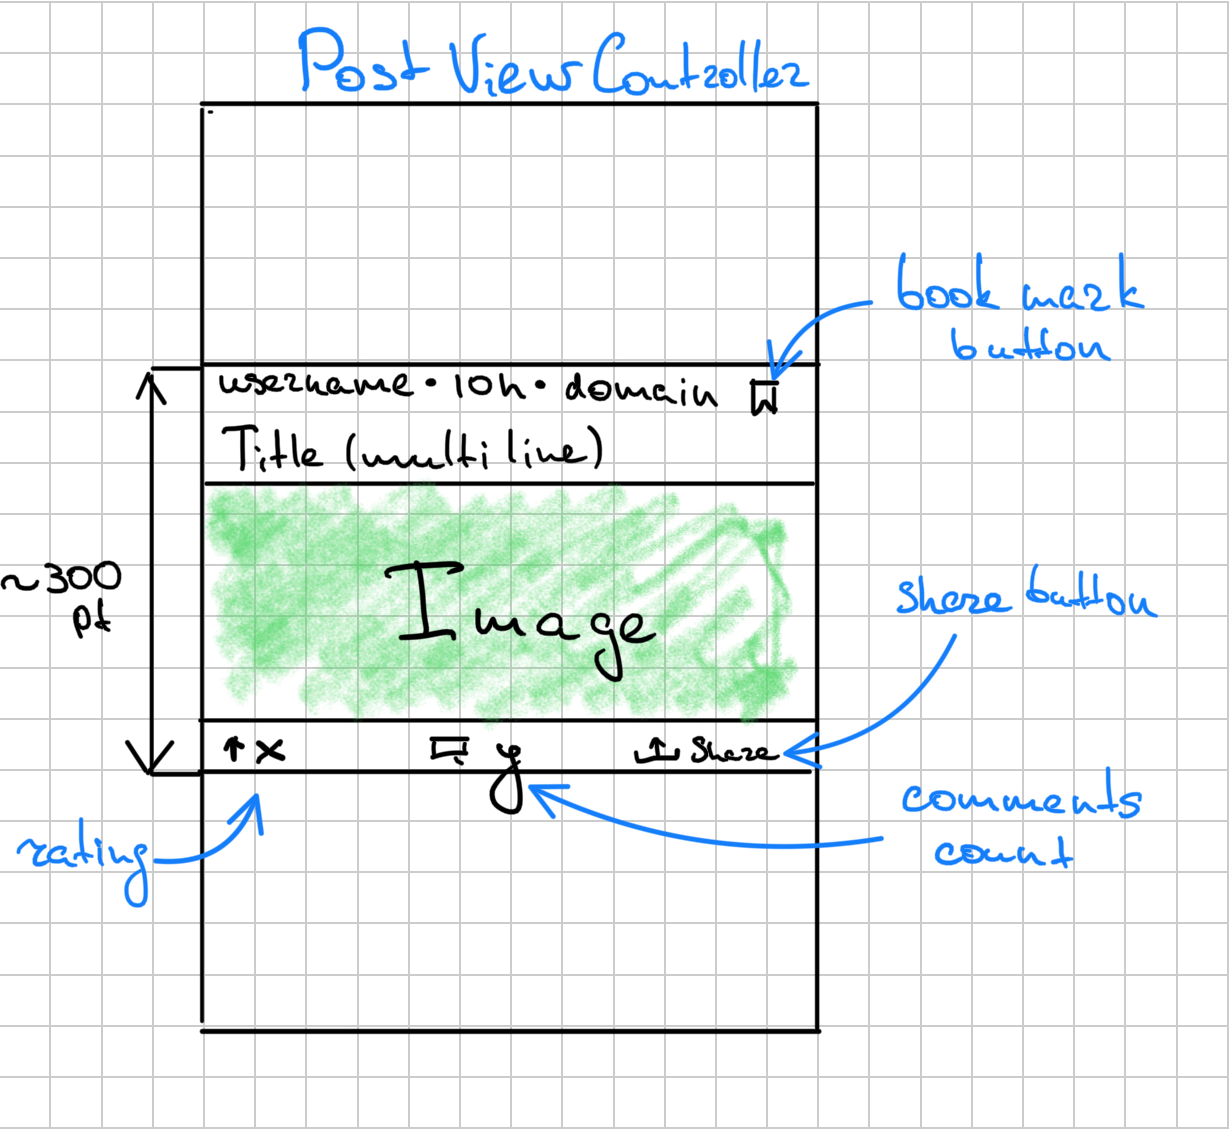 Post View Controller
book mark
button
username • 10h • domain
Title (multi line)
~300
pt
Image
share button
↑ X
y
Share
comments
count
rating